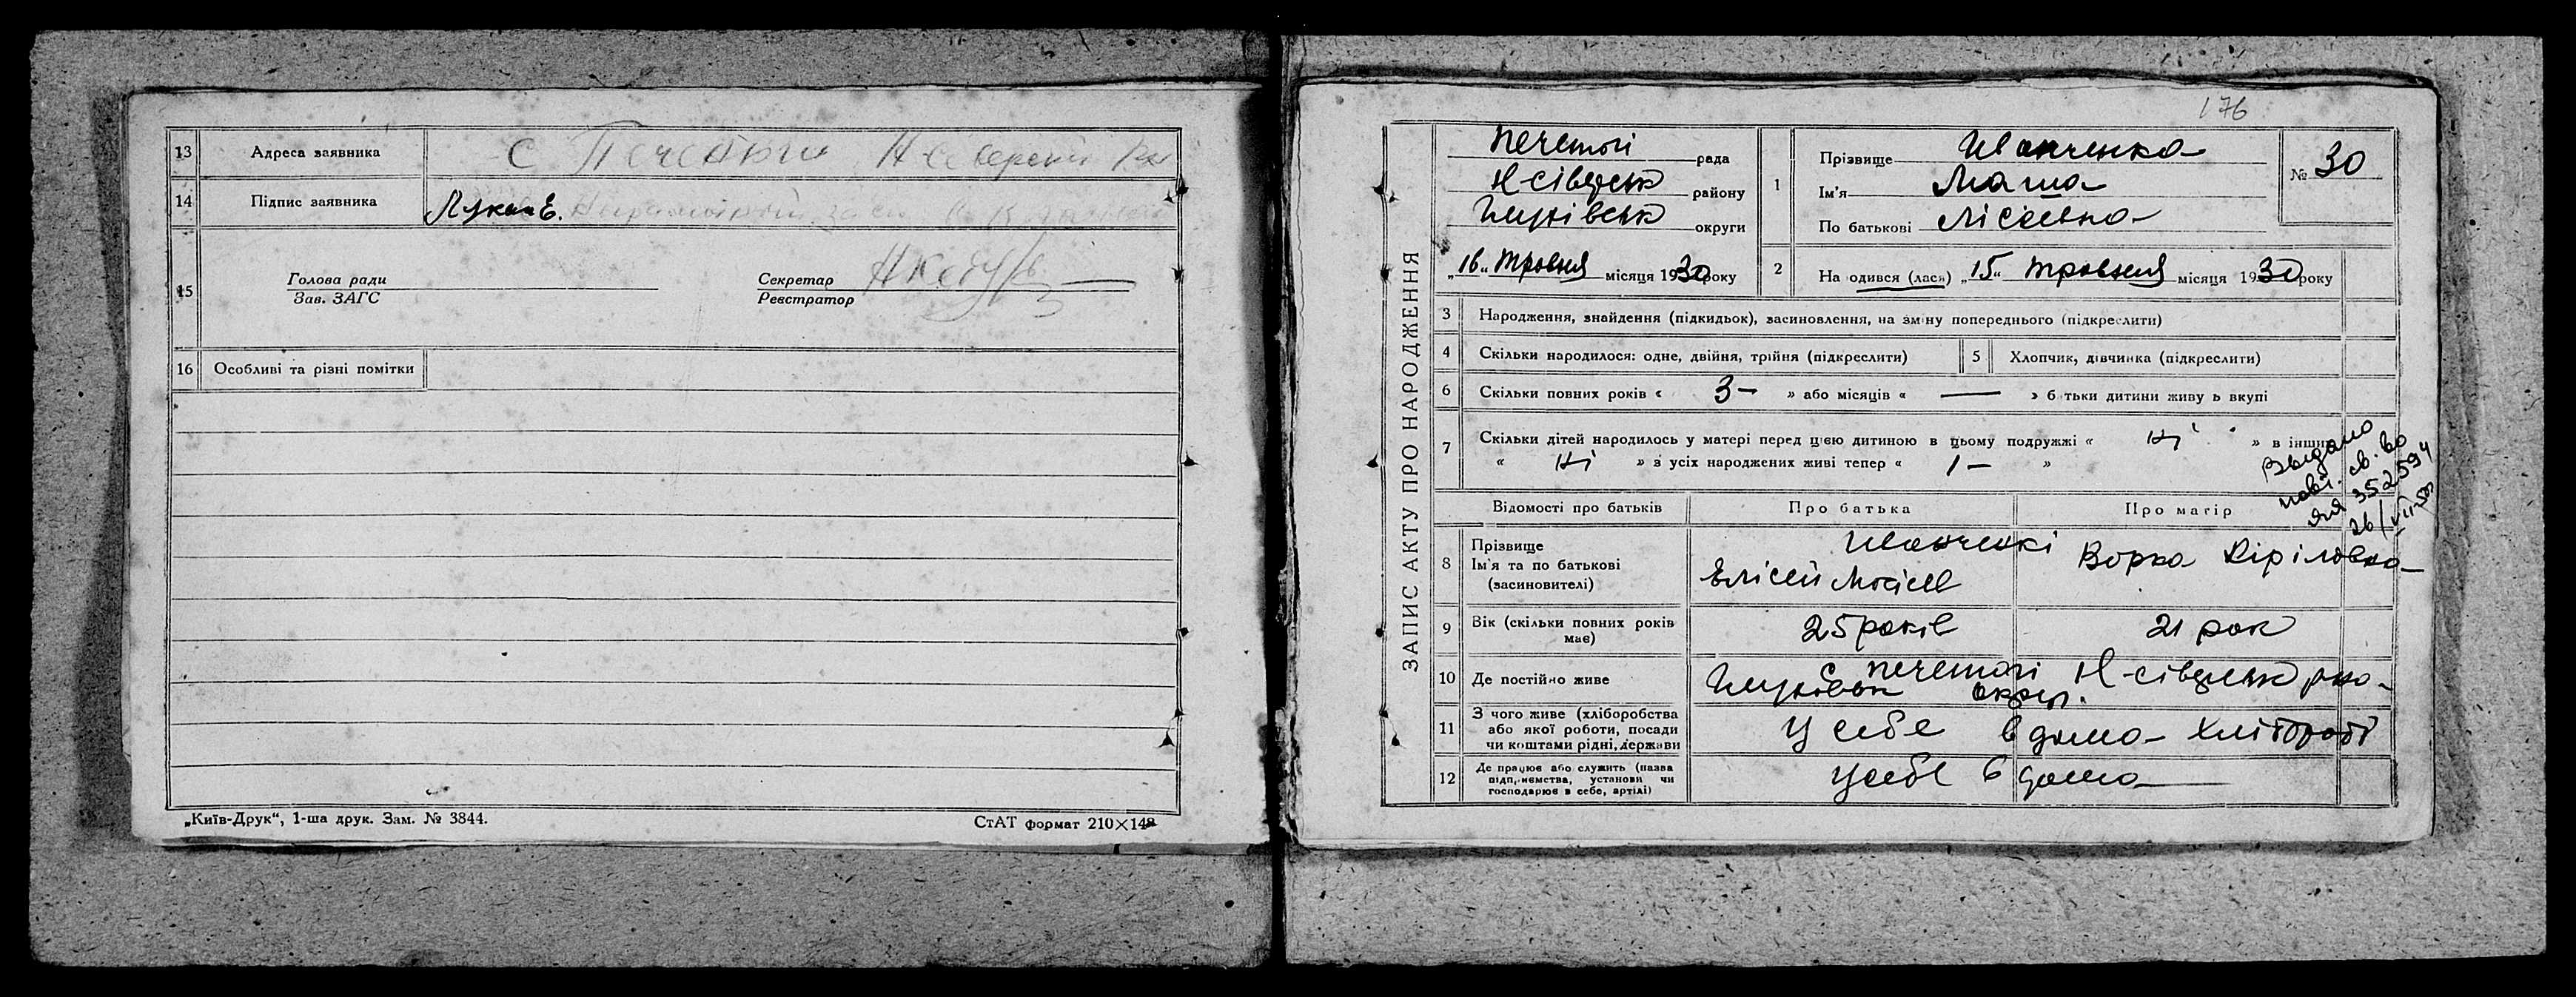 13 Адреса заявника с Печенюги
14 Підпис заявника Лукан Е.
15 Голова ради
Зав. ЗАГС
Секретар
Реєстратор
16 Особливі та різні помітки
„Київ-Друк“, 1-ша друк. Зам. № 3844.
СтАТ формат 210×148
176
ЗАПИС АКТУ ПРО НАРОДЖЕННЯ
Печеногі рада
Н-сівдрськ району
Глухівськ округи
„16“ травня місяця 1930 року
1 Прізвище Иванченко
Ім'я Маша
По батькові Лісеевна
№ 30
2 На одився (лась) „15“ травня місяця 1930 року
3 Народження, знайдення (підкидьок), засиновлення, на зміну попереднього (підкреслити)
4 Скільки народилося: одне, двійня, трійня (підкреслити)
5 Хлопчик, дівчинка (підкреслити)
6 Скільки повних років « 3 — » або місяців « — » б тьки дитини живу ь вкупі
7 Скільки дітей народилось у матері перед цією дитиною в цьому подружжі « ні » в інших
« ні » з усіх народжених живі тепер « 1 — »
Выдано
повт. св. во
352594
Відомості про батьків
Про батька
Про матір
8 Прізвище
Ім'я та по батькові
(засновителі)
Иванченкі
Елісей Мосіев
Ворка Кіріловна
9 Вік (скільки повних років має)
25 років
21 рок
10 Де постійно живе
с Печеногі Н-сівдрськ р-но
11 З чого живе (хліборобства
або якої роботи, посади
чи коштами рідні, держави
у себе вдома хлібороб
12 Де працює або служить (назва
підприємства, установи чи
господарює в себе, артілі)
у себе вдома